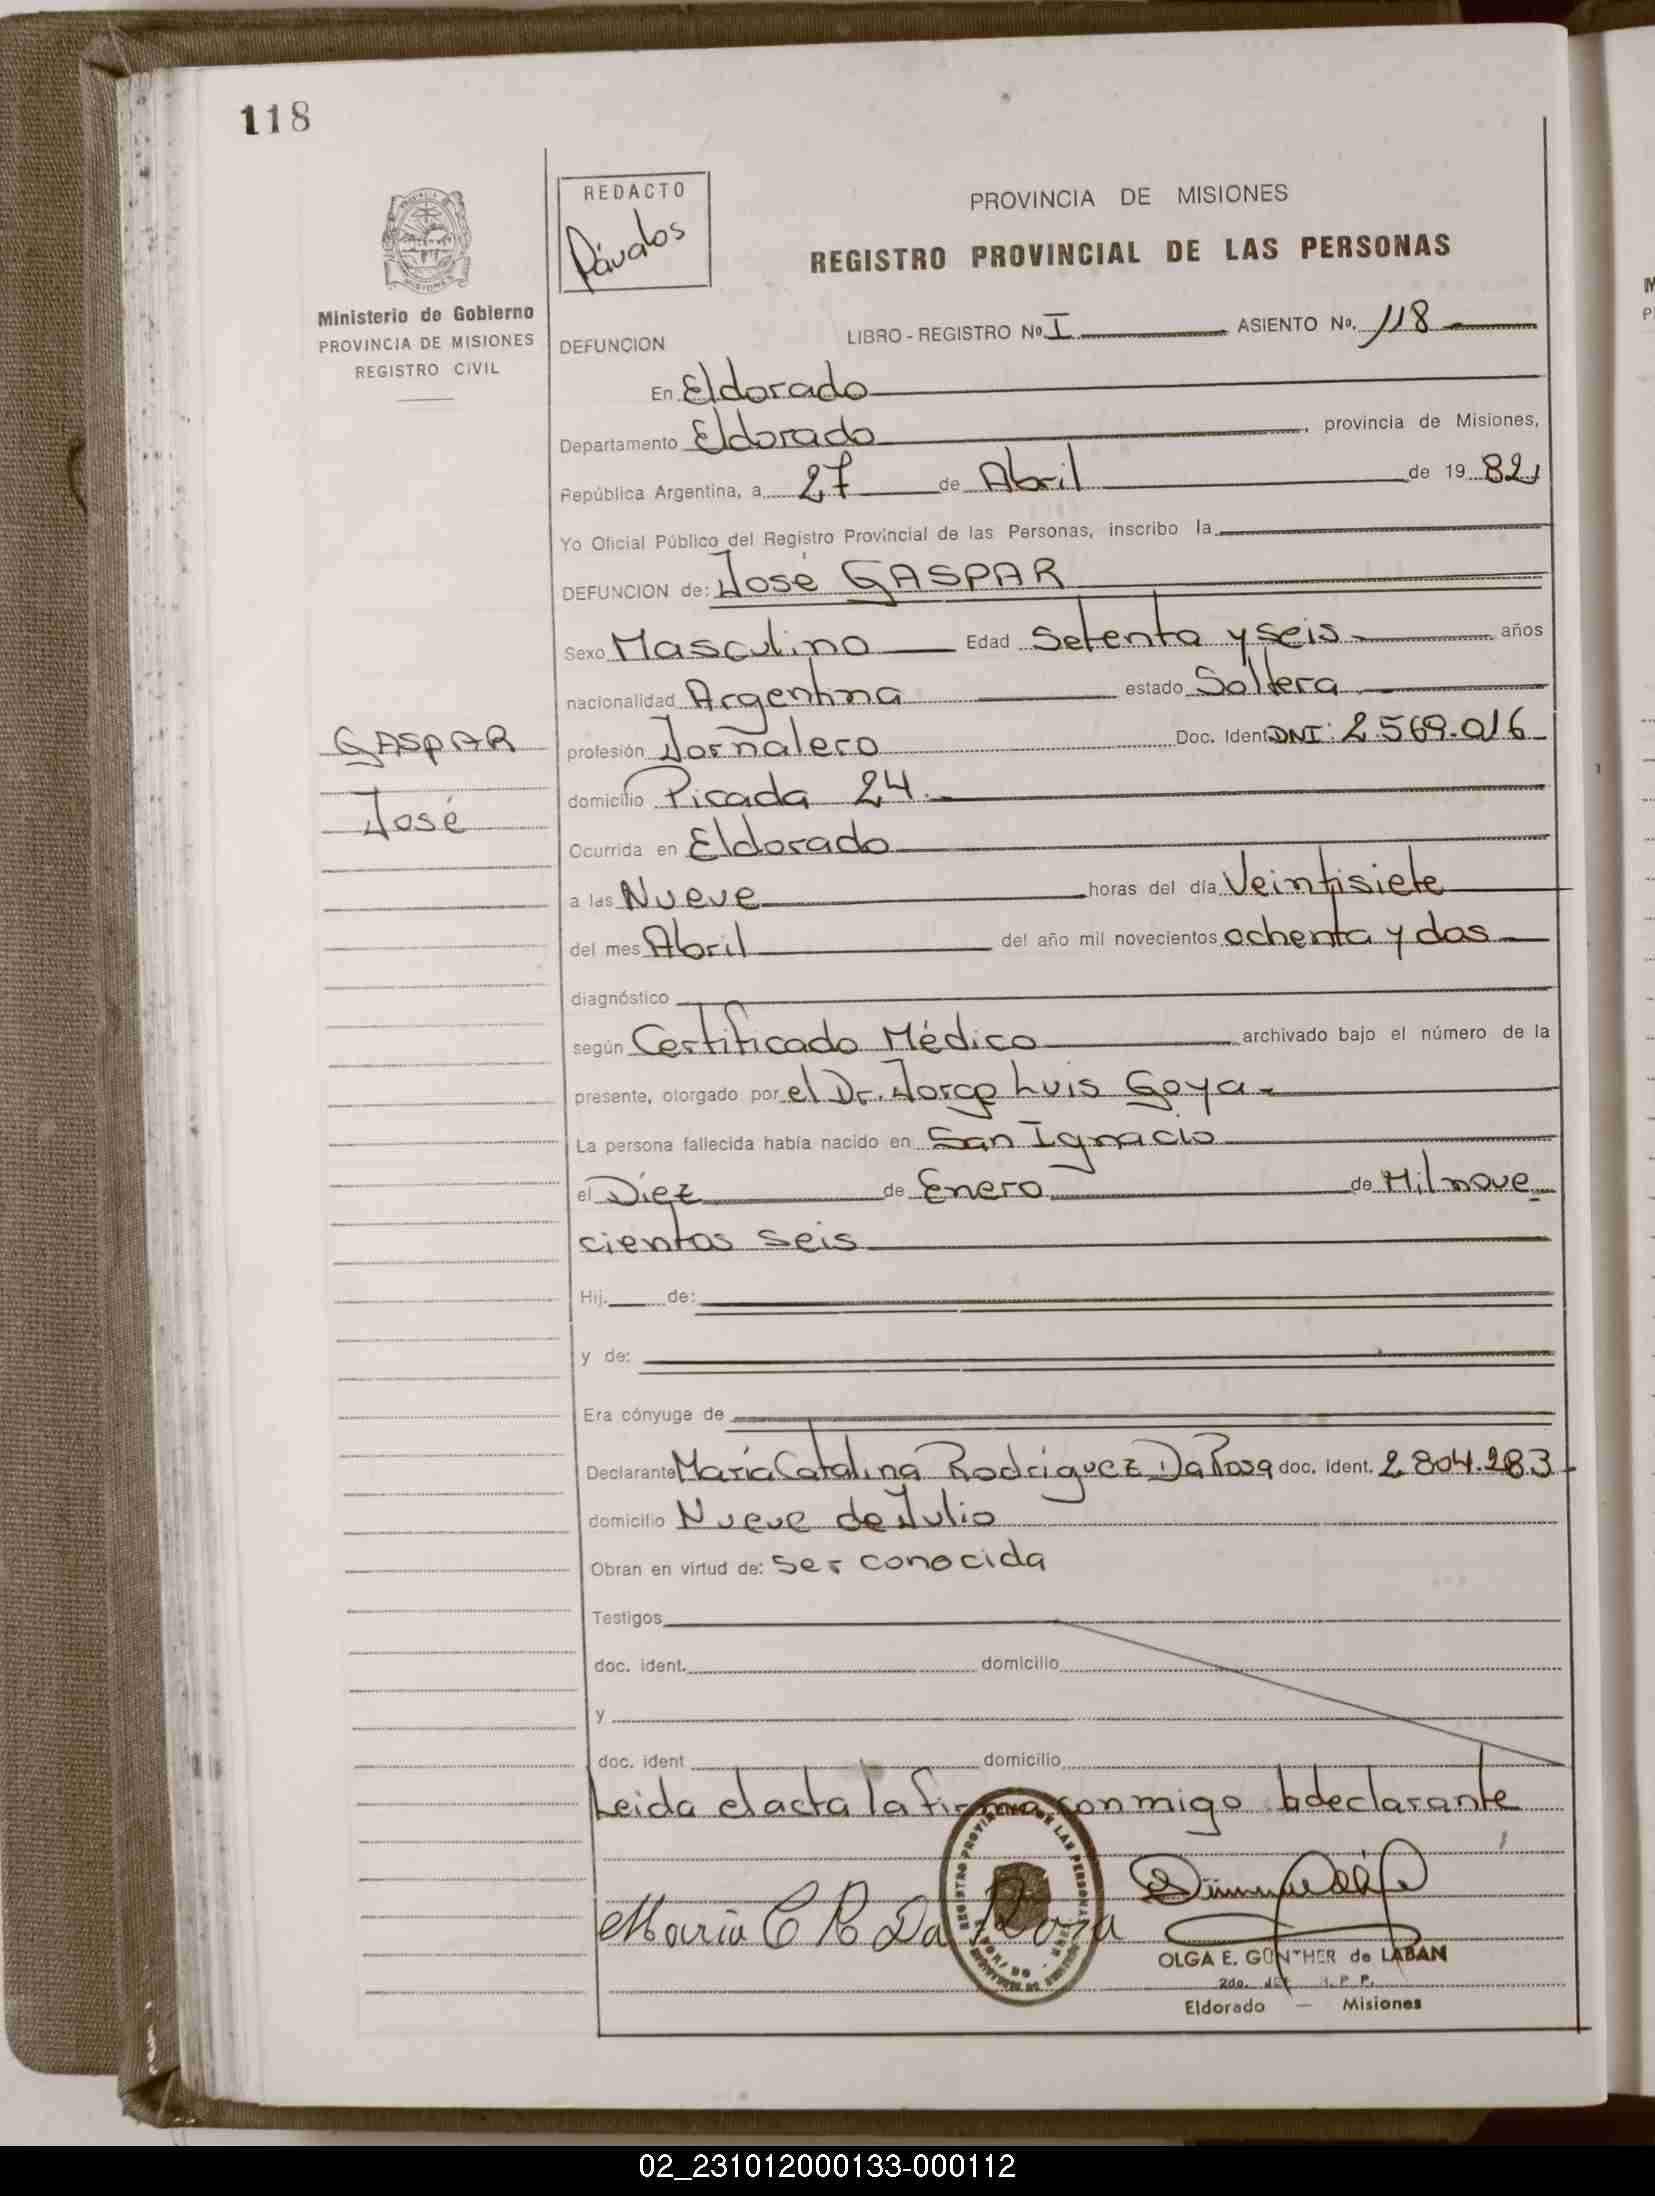 118
REDACTO
Dávalos
PROVINCIA DE MISIONES
REGISTRO PROVINCIAL DE LAS PERSONAS
Ministerio de Gobierno
PROVINCIA DE MISIONES
REGISTRO CIVIL
DEFUNCION LIBRO-REGISTRO Nº I ASIENTO Nº. 118
En Eldorado
Departamento Eldorado, provincia de Misiones,
República Argentina, a 27 de Abril de 1982
Yo Oficial Público del Registro Provincial de las Personas, inscribo la
DEFUNCION de: José GASPAR
Sexo Masculino Edad Setenta y seis años
nacionalidad Argentina estado Soltera
GASPAR
José
profesión Jornalero Doc. Ident DNI: 2.569.016
domicilio Picada 24.
Ocurrida en Eldorado
a las Nueve horas del día Veintisiete
del mes Abril del año mil novecientos ochenta y dos
diagnóstico
según Certificado Médico archivado bajo el número de la
presente, otorgado por el Dr. Jorge Luis Goya
La persona fallecida había nacido en San Ignacio
el Diez de Enero de Mil nove
cientos seis
Hij. de:
y de:
Era cónyuge de
Declarante María Catalina Rodriguez Da Rosa doc. Ident. 2.804.283
domicilio Nueve de Julio
Obran en virtud de: ser conocida
Testigos
doc. ident. domicilio
y
doc. ident domicilio
Leida el acta la firma conmigo la declarante
María C R Da Roza
OLGA E. GÜNTHER de LABAN
2do.
Eldorado — Misiones
02_231012000133-000112